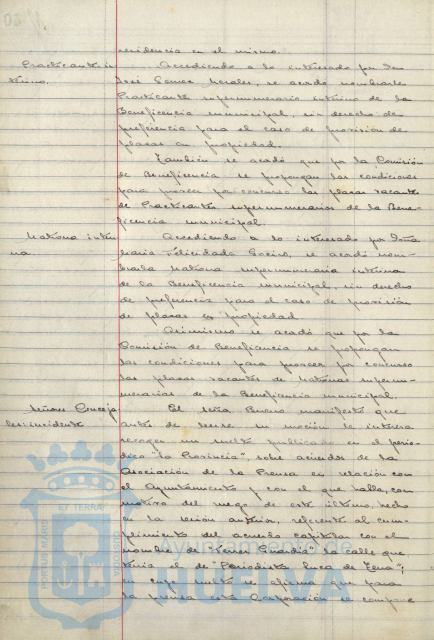 residencia en el mismo.
Practicante in
terino.
Accediendo a lo interesado por Don
José Gomez Morales, se acordó nombrarle
Practicante supernumerario interino de la
Beneficencia municipal, sin derecho de
preferencia para el caso de provisión de
plazas en propiedad.
Tambien se acordó que por la Comisión
de Beneficencia se propongan las condiciones
para proveer por concurso las plazas vacantes
de Practicantes supernumerarios de la Bene-
ficencia municipal.
Matrona interi
na.
Accediendo a lo interesado por Doña
Maria Felicidada, se acordó nom-
brarla Matrona supernumeraria interina
de la Beneficencia municipal, sin derecho
de preferencia para el caso de provisión
de plazas en propiedad
Asimismo se acordó que por la
Comisión de Beneficencia se propongan
las condiciones para proveer por concurso
las plazas vacantes de Matronas supernu-
merarias de la Beneficencia municipal.
Señores Conceja
les: incidente
El señor Bueno manifestó que
antes de su moción le interesa
recoger un suelto publicado en el perio-
dico "La Provincia", sobre acuerdo de la
Asociación de la Prensa en relación con
el Ayuntamiento y con el que habla, con
motivo del ruego de este último, hecho
en la sesión anterior, referente al cum-
plimiento del acuerdo capitular con el
nombre de la calle que
tenia el de "Periodista Luca de Tena";
en cuyo suelto se afirma que para
la prensa esta Corporación se compone
Ayuntamiento de
HUELVA